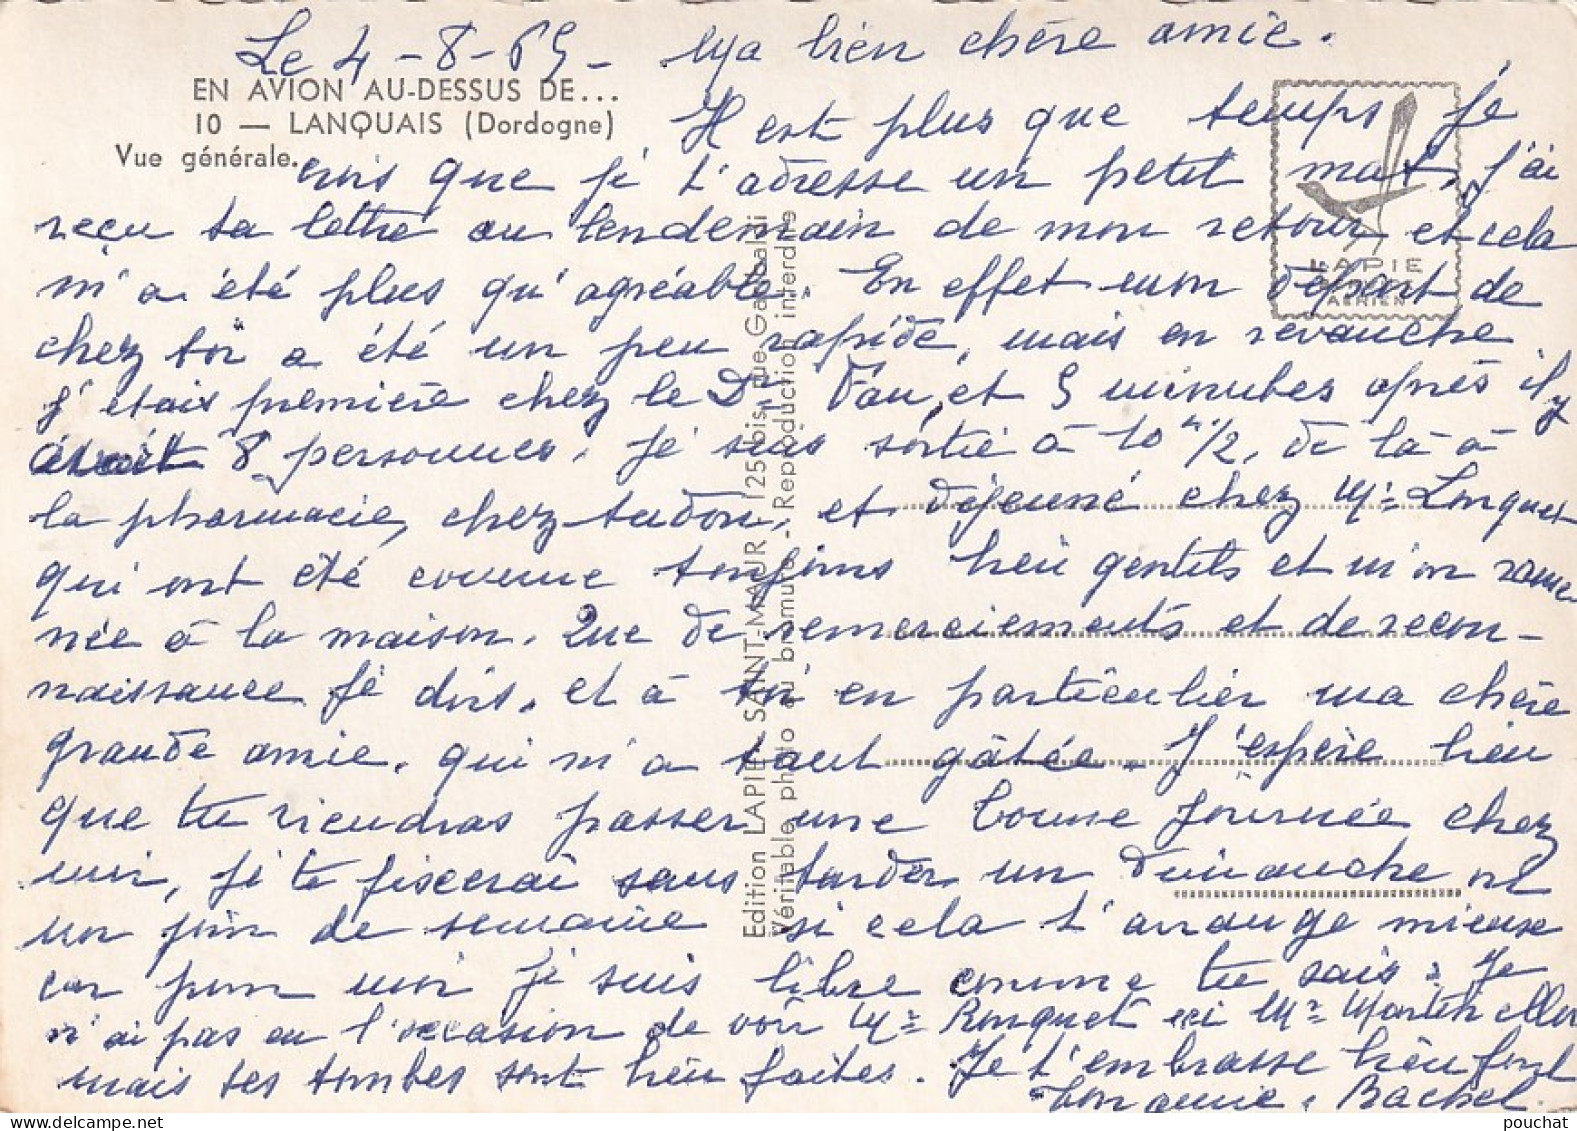 Le 4-8-69- Ma bien chère amie.
EN AVION AU-DESSUS DE...
10 — LANQUAIS (Dordogne)
Vue générale.
Il est plus que temps je
crois que je t'adresse un petit mot, j'ai
reçu ta lettre au lendemain de mon retour et cela
m'a été plus qu'agréable. En effet mon départ de
chez toi a été un peu rapide, mais en revanche
j'étais première chez le Dr et 5 minutes après il y
avait 8 personnes. Je suis sortie à 10 h 1/2, de là à
la pharmacie, chez et déjeuné chez Mme
qui ont été comme toujours bien gentils et m'on rame-
née à la maison. Que de remerciements et de recon-
naissance je dois, et à toi en particulier ma chère
grande amie, qui m'a tant gâtée. J'espère bien
que tu viendras passer une bonne journée chez
moi, je te fixerai sans tarder un dimanche ou
un jour de semaine si cela t'arrange mieux
car pour moi je suis libre comme tu sais. Je
n'ai pas eu l'occasion de voir Mme ni Mr
mais ses tombes sont bien faites. Je t'embrasse bien fort
Ton amie, Rachel
LAPIE
AÉRIEN
Edition LAPIE, SAINT-MAUR, 125 bis, rue Garibaldi
Véritable photo au bromure - Reproduction interdite
pouchat